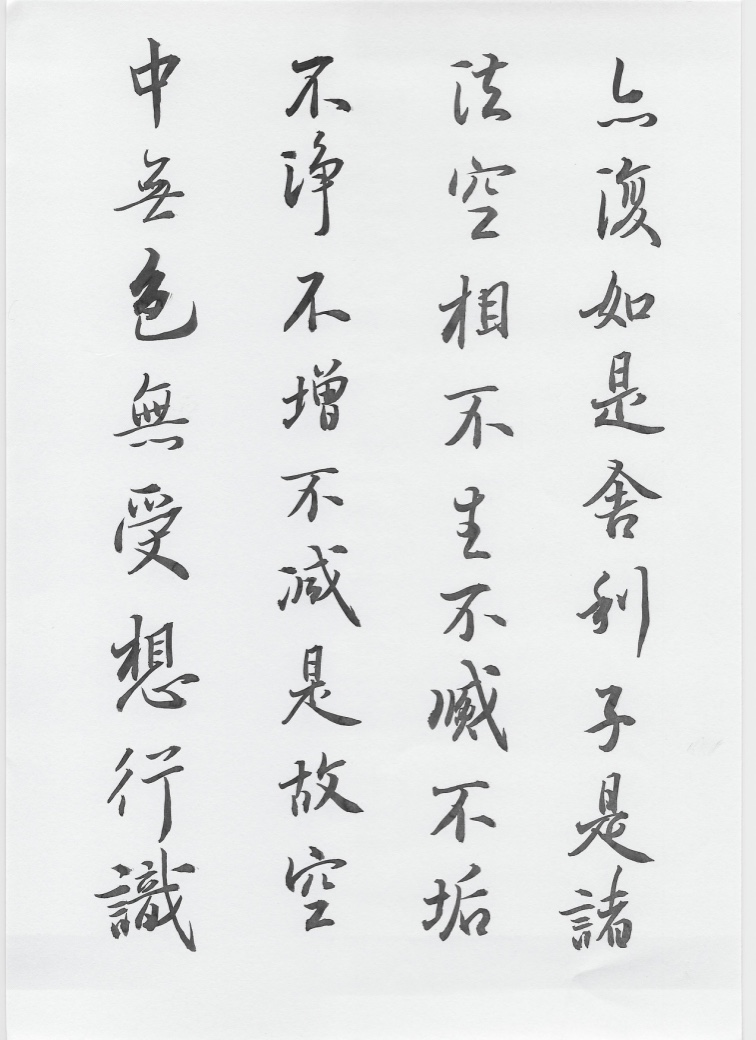 亦復如是舍利子是諸
法空相不生不滅不垢
不淨不增不減是故空
中無色無受想行識